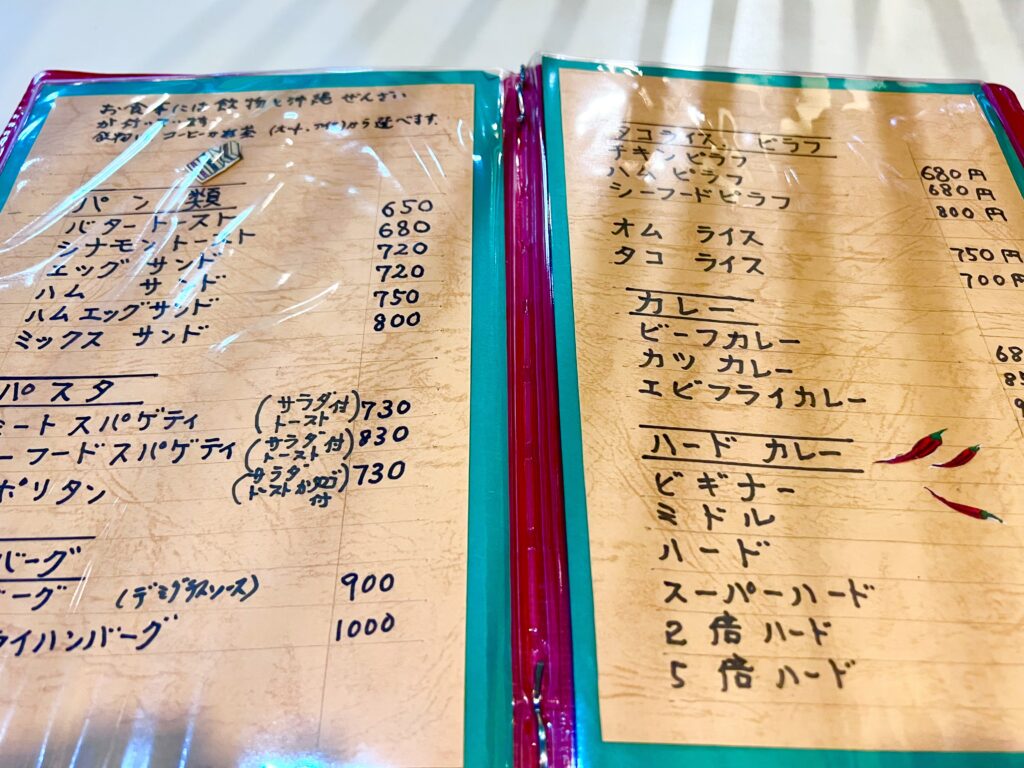 お食事には飲物と沖縄ぜんざい
が付いてます
コーヒーか紅茶 から選べます。
パン類
バタートースト 650
シナモントースト 680
エッグ サンド 720
ハム サンド 720
ハムエッグサンド 750
ミックス サンド 800
パスタ
ミートスパゲティ (サラダ付トースト) 730
ーフードスパゲティ (サラダ付トースト) 830
ポリタン 730
バーグ
バーグ (デミグラスソース) 900
ライハンバーグ 1000
タコライス ピラフ
チキンピラフ 680円
ハムピラフ 680円
シーフードピラフ 800円
オム ライス 750円
タコ ライス 700円
カレー
ビーフカレー
カツ カレー
エビフライカレー
ハード カレー
ビギナー
ミドル
ハード
スーパーハード
2倍ハード
5倍ハード